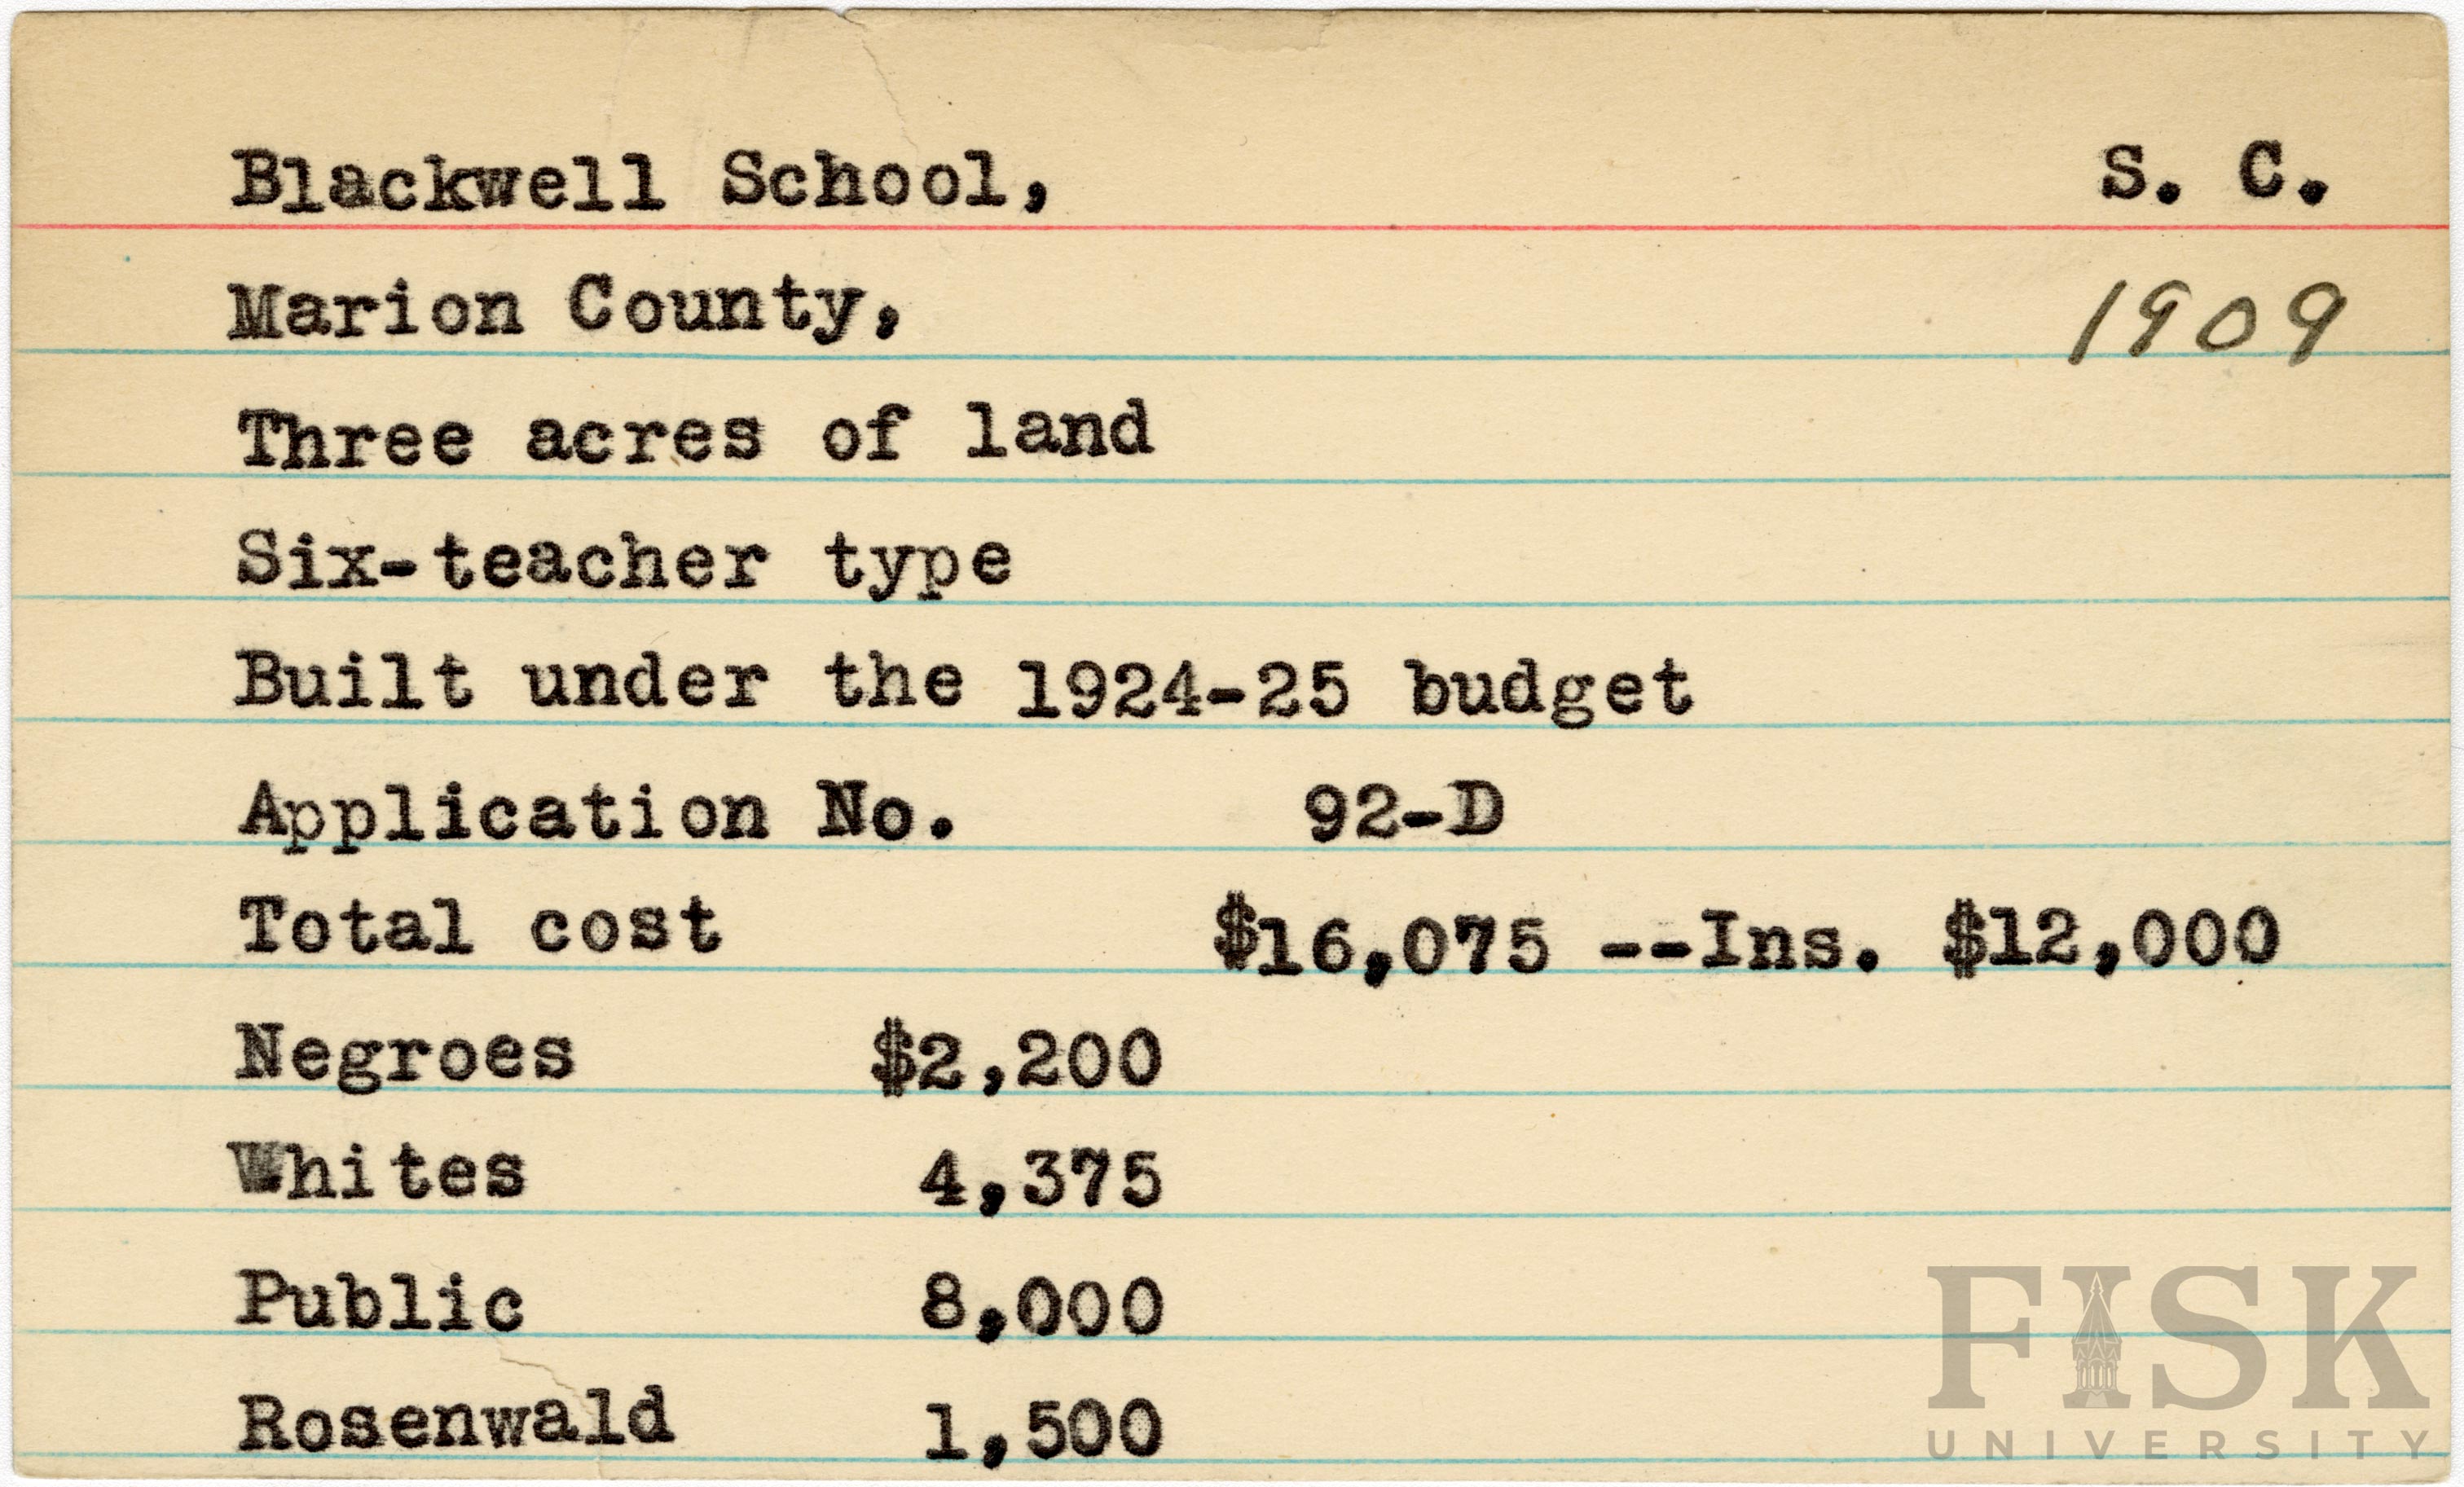 Blackwell School, S. C.
Marion County, 1909
Three acres of land
Six-teacher type
Built under the 1924-25 budget
Application No. 92-D
Total cost $16,075 --Ins. $12,000
Negroes $2,200
Whites 4,375
Public 8,000
Rosenwald 1,500
FISK
UNIVERSITY